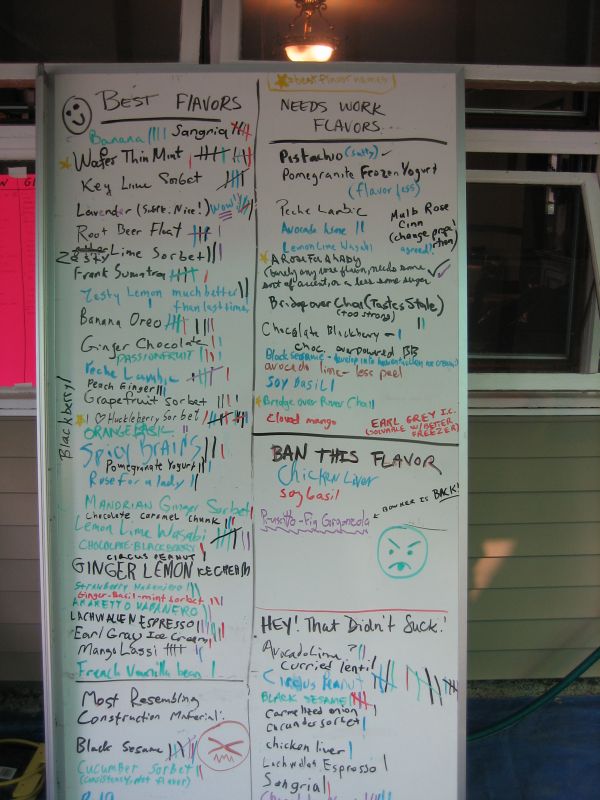 BEST FLAVORS
Banana
Sangria
Wafer Thin Mint
Key Lime Sorbet
Lavender (Subtle. Nice!) WOW!
Root Beer Float
Zesty Lime Sorbet
Frank Sumatra
Zesty Lemon much better
than last time
Banana Oreo
Ginger Chocolate
PASSIONFRUIT
Peche Lambic
Peach Ginger
Grapefruit Sorbet
I ♡ Huckleberry Sorbet
Blackberry
ORANGE BASIC
SPICY BRAINS
Pomegranate Yogurt
Rose for a lady
MANDRIAN Ginger Sorbet
Chocolate caramel chunk
Lemon Lime Wasabi
CHOCOLATE-BLACKBERRY
CIRCUS PEANUT
GINGER LEMON ICE CREAM
STRAWBERRY HABANERO
Ginger-Basil-mint sorbet
AMARETTO HABANERO
LACHWALLEN ESPRESSO
Earl Gray Ice Cream
Mango Lassi
French Vanilla bean
Most Resembling
Construction Material:
Black Sesame
Cucumber Sorbet
(consistency, not flavor)
best flavor names
NEEDS WORK
FLAVORS
Pistachio (salty)
Pomegranate Frozen Yogurt
(flavorless)
Peche Lambic
Mulb Rose
Cinn
(change proportion)
agreed!
Avocado Lime
Lemon Lime Wasabi
A ROSE FOR A LADY
(barely any rose flavor, needs some
sort of accent, or a less some sugar
Bridge over Chai (Tastes Stale)
(too strong)
Chocolate Blackberry
choc. overpowered BB
Black sesame - develop into heaven
avocado lime - less peel
SOY BASIL
Bridge over River Chai
cloved mango
EARL GREY I.C.
(SOLVABLE W/ BETTER
FREEZER)
BAN THIS FLAVOR
Chicken Liver
soy basil
Prosciutto-Fig Gorgonzola
BOWKER IS BACK!
HEY! That Didn't Suck!
Avocado Lime
Curried lentil
Circus Peanut
BLACK SESAME
Carmelized onion
Cucumber sorbet
chicken liver
Lachwallen Espresso
Sangria